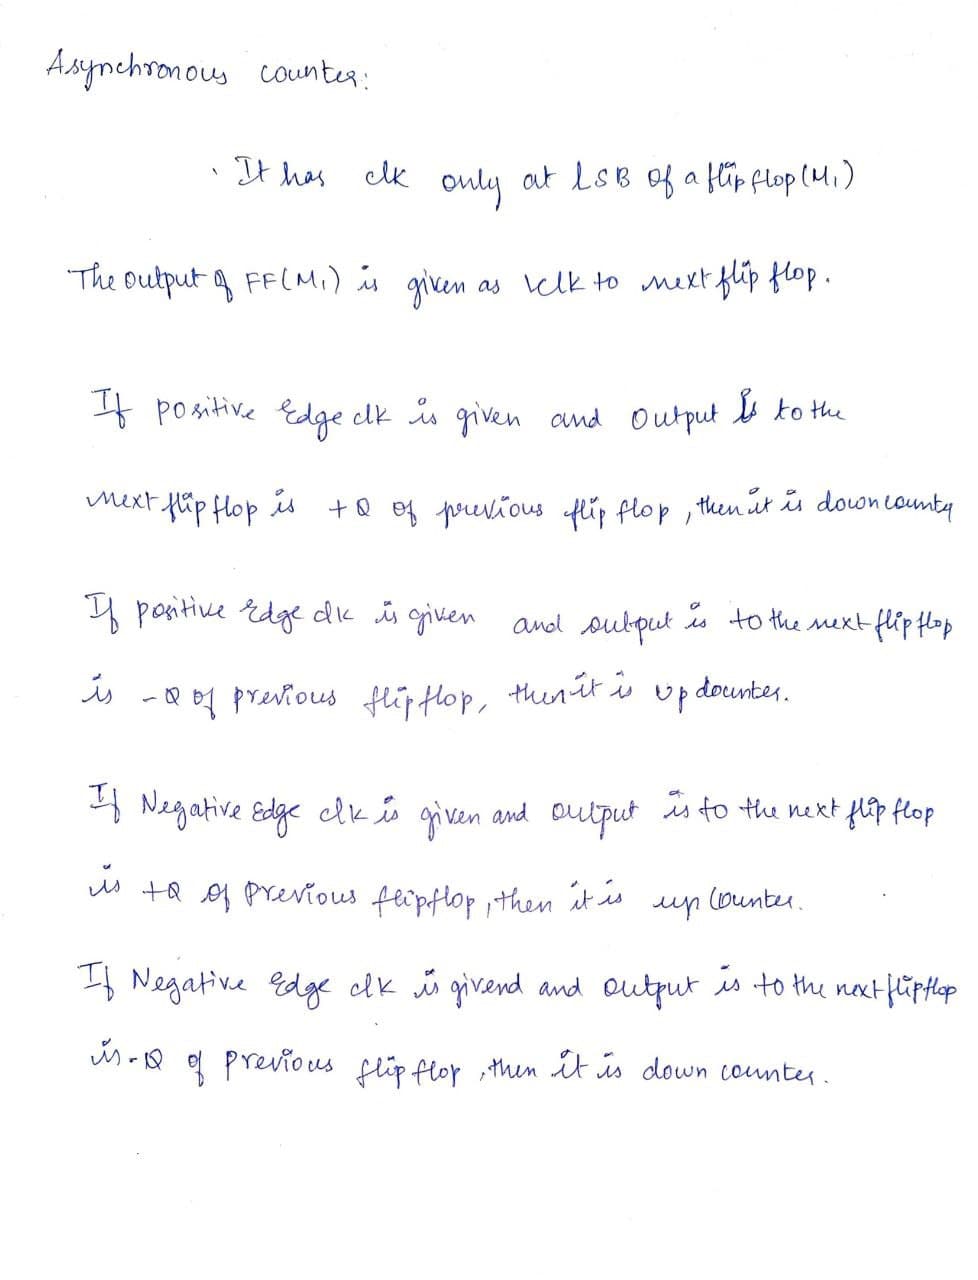 Asynchronous counter:
. It has clk only at LSB of a flip flop (M1)
The output of FF(M1) is given as clk to next flip flop.
If positive Edge clk is given and output is to the
next flip flop is +Q of previous flip flop, then it is down counter
If positive Edge clk is given and output is to the next flip flop
is -Q of previous flip flop, then it is up counter.
If Negative Edge clk is given and output is to the next flip flop
is +Q of previous flipflop, then it is up counter.
If Negative Edge clk is givend and output is to the next flip flop
is -Q of previous flip flop, then it is down counter.